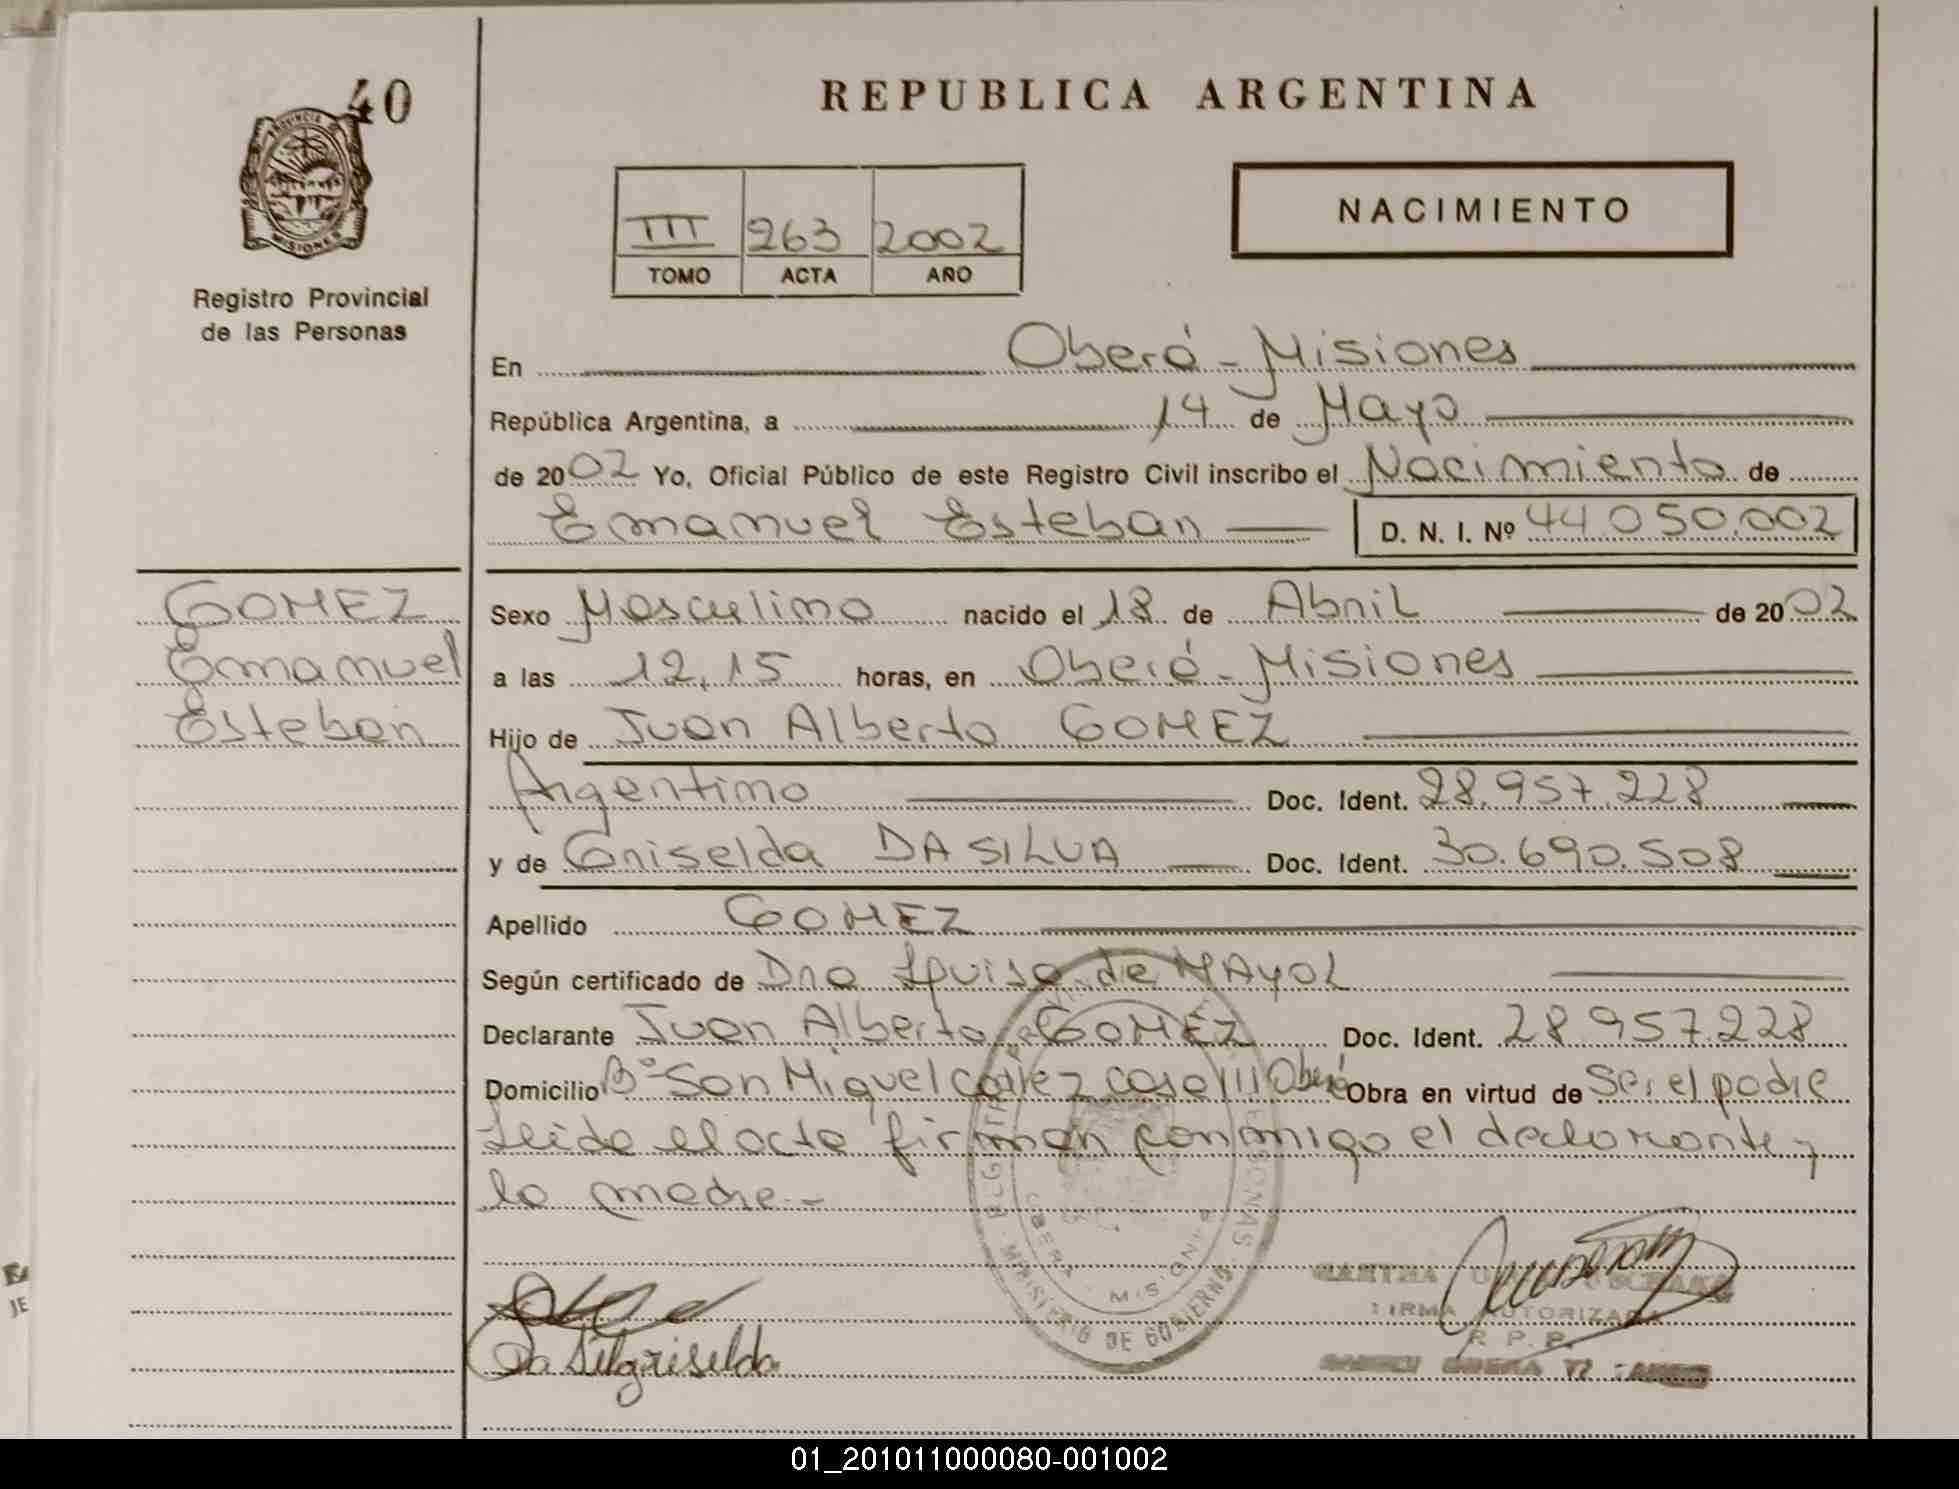 40
REPUBLICA ARGENTINA
PROVINCIA DE
MISIONES
Registro Provincial
de las Personas
III 263 2002
TOMO ACTA AÑO
NACIMIENTO
En Oberá - Misiones
República Argentina, a 14 de Mayo
de 2002 Yo, Oficial Público de este Registro Civil inscribo el Nacimiento de
Emanuel Esteban D. N. I. Nº 44.050.002
GOMEZ
Emanuel
Esteban
Sexo Masculino nacido el 18 de Abril de 2002
a las 12,15 horas, en Oberá - Misiones
Hijo de Juan Alberto GOMEZ
Argentino Doc. Ident. 28.957.228
y de Griselda DA SILVA Doc. Ident. 30.690.508
Apellido GOMEZ
Según certificado de Dra Luisa de MAYOL
Declarante Juan Alberto GOMEZ Doc. Ident. 28.957.228
Domicilio Bº San Miguel calle 2 casa 111 Oberá Obra en virtud de Ser el padre
Leido el acta firman conmigo el declarante y
la madre.-
MINISTERIO DE GOBIERNO
OBERA - MISIONES
Da Silgriselda
FIRMA AUTORIZADA
R. P. P.
01_201011000080-001002